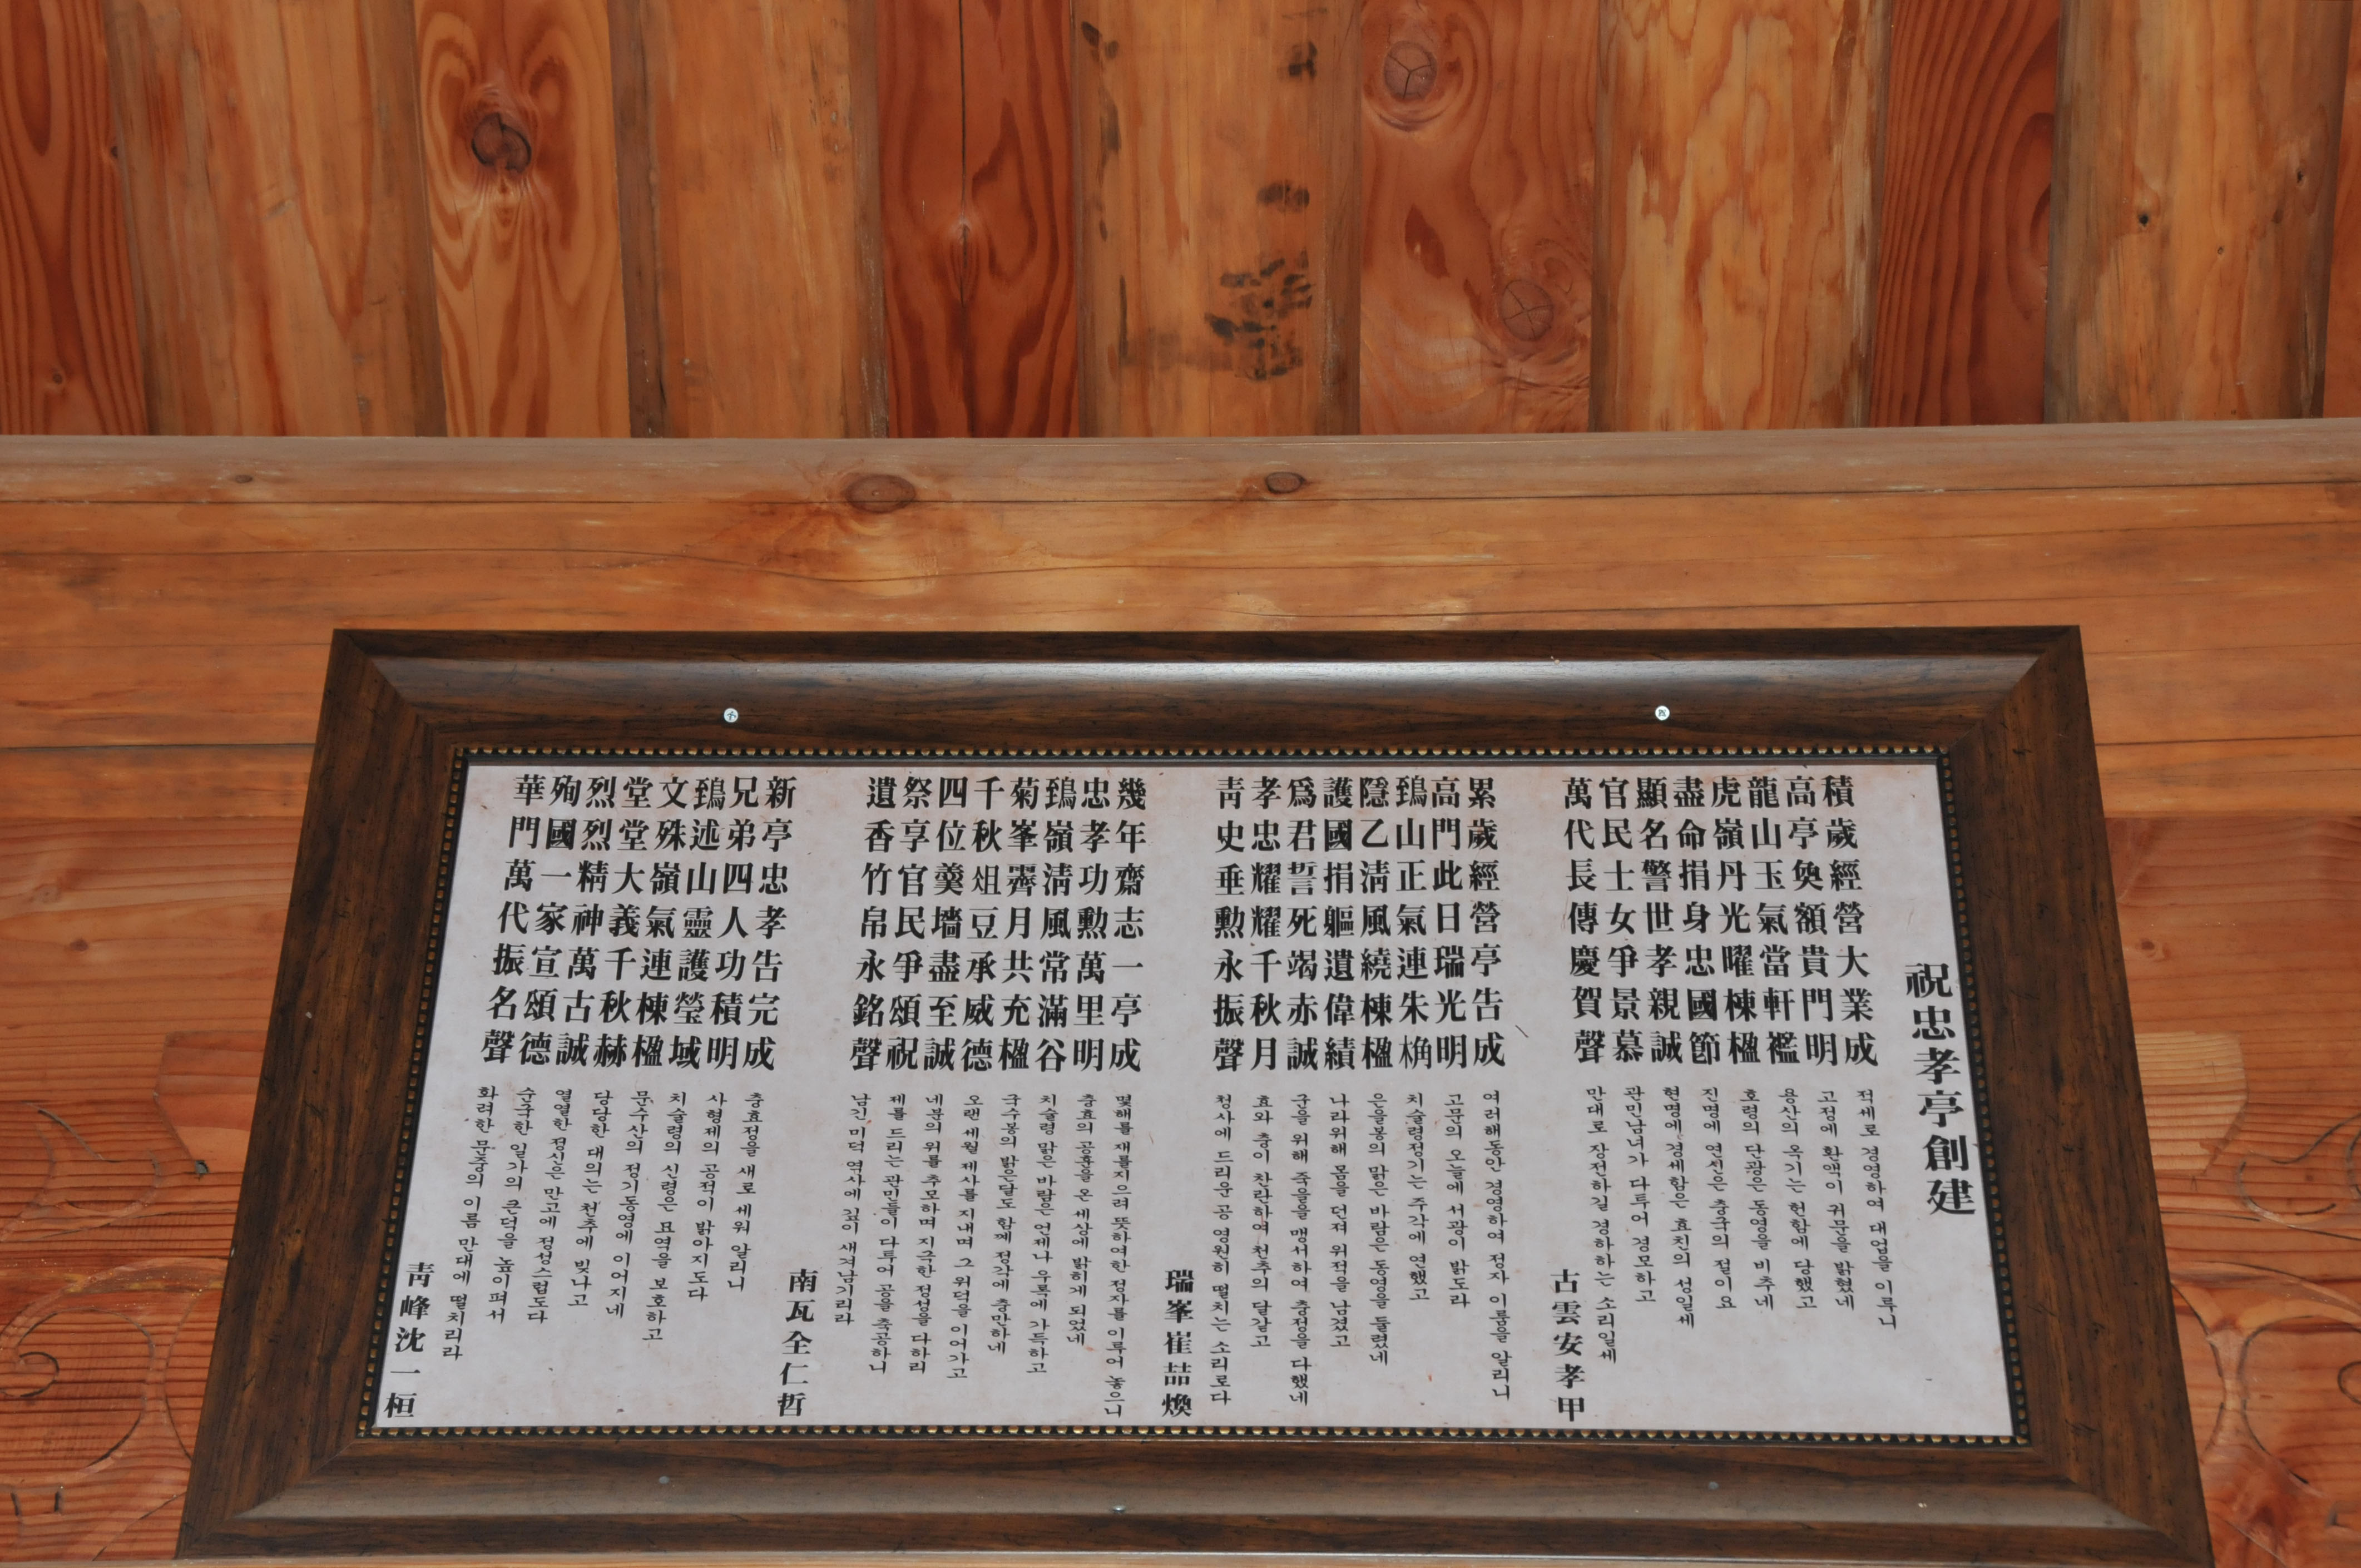 祝忠孝亭創建
積歲經營大業成
高亭奐額貴門明
龍山玉氣當軒襤
虎嶺丹光曜棟楹
盡命捐身忠國節
顯名警世孝親誠
官民士女爭景慕
萬代長傳慶賀聲
적세로 경영하여 대업을 이루니
고정에 환액이 귀문을 밝혔네
용산의 옥기는 헌함에 당했고
호령의 단광은 동영을 비추네
진명에 연선은 충국의 절이요
현명에 경세함은 효친의 성일세
관민남녀가 다투어 경모하고
만대로 장전하길 경하하는 소리일세
古雲安孝甲
累歲經營亭告成
高門此日瑞光明
鵄山正氣連朱桷
隱乙淸風繞棟楹
護國捐軀遺偉績
爲君誓死竭赤誠
孝忠耀耀千秋月
靑史垂勳永振聲
여러해동안 경영하여 정자 이룸을 알리니
고문의 오늘에 서광이 밝도라
치술령정기는 주각에 연했고
은을봉의 맑은 바람은 동영을 둘렸네
나라위해 몸을 던져 위적을 남겼고
군을 위해 죽음을 맹서하여 충정을 다했네
효와 충이 찬란하여 천추의 달같고
청사에 드리운 공 영원히 떨치는 소리로다
瑞峯崔喆煥
幾年齋志一亭成
忠孝功勳萬里明
鵄嶺淸風常滿谷
菊峯霽月共充楹
千秋俎豆承威德
四位羹墻盡至誠
祭享官民爭頌祝
遺香竹帛永銘聲
몇해를 재를지으려 뜻하여한 정자를 이루어 놓으니
충효의 공훈을 온 세상에 밝히게 되었네
치술령 맑은 바람은 언제나 우록에 가득하고
국수봉의 밝은달도 함께 정각에 충만하네
오랜 세월 제사를 지내며 그 위덕을 이어가고
네분의 위를 추모하며 지극한 정성을 다하리
제를 드리는 관민들이 다투어 공을 축공하니
남긴 미덕 역사에 깊이 새겨남기리라
南瓦全仁哲
新亭忠孝告完成
兄弟四人功積明
鵄述山靈護瑩域
文殊嶺氣連棟楹
堂堂大義千秋赫
烈烈精神萬古誠
殉國一家宣頌德
華門萬代振名聲
충효정을 새로 세워 알리니
사형제의 공적이 밝아지도다
치술령의 신령은 묘역을 보호하고
문수산의 정기동영에 이어지네
당당한 대의는 천추에 빛나고
열열한 정신은 만고에 정성스럽도다
순국한 일가의 큰덕을 높이펴서
화려한 문중의 이름 만대에 떨치리라
靑峰沈一桓